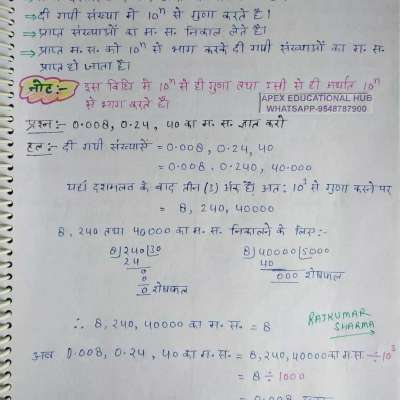 ⇒ दी गयी संख्या में 10ⁿ से गुणा करते है।
⇒ प्राप्त संख्याओं का म॰ स॰ निकाल लेते है।
⇒ प्राप्त म॰ स॰ को 10ⁿ से भाग करके दी गयी संख्याओं का म॰ स॰
प्राप्त हो जाता है।
नोट:- इस विधि में 10ⁿ से ही गुणा तथा उसी से ही अर्थात 10ⁿ
से भाग करते है।
APEX EDUCATIONAL HUB
WHATSAPP-9548787900
प्रश्न:- 0.008, 0.24, 40 का म॰ स॰ ज्ञात करो
हल:- दी गयी संख्याऐं = 0.008, 0.24, 40
= 0.008, 0.240, 40.000
यहाँ दशमलव के बाद तीन (3) अंक है। अतः 10³ से गुणा करने पर
= 8, 240, 40000
8, 240 तथा 40000 का म॰ स॰ निकालने के लिए:-
8)240(30 8)40000(5000
24 40
0 000 शेषफल
0
0 शेषफल
∴ 8, 240, 40000 का म॰ स॰ = 8
RAJKUMAR
SHARMA
अब 0.008, 0.24, 40 का म॰ स॰ = 8, 240, 40000 का म॰स॰ ÷ 10³
= 8 ÷ 1000
= 0.008